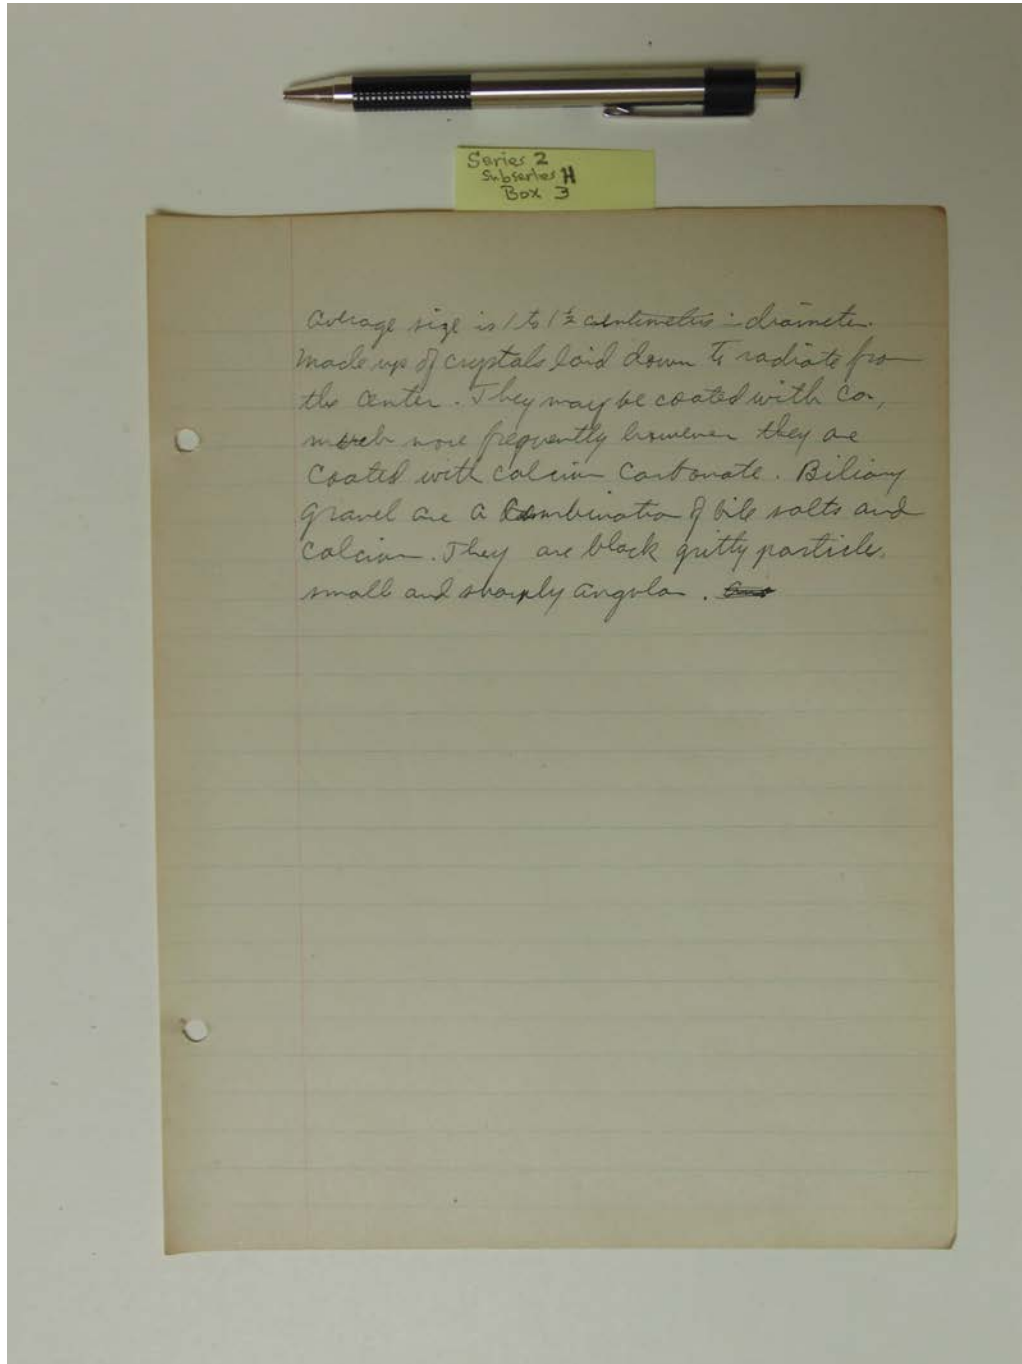 Series 2
Subseries H
Box 3
Average size is 1 to 1½ centimeters in diameter.
Made up of crystals laid down to radiate from
the center. They may be coated with Ca,
much more frequently however they are
coated with calcium carbonate. Biliary
gravel are a combination of bile salts and
calcium. They are black gritty particles
small and sharply angular.